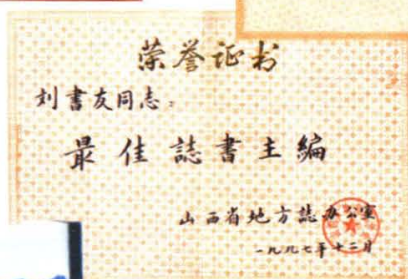 荣誉证书
刘書友同志：
最佳誌書主編
山西省地方誌办公室
一九九七年十二月